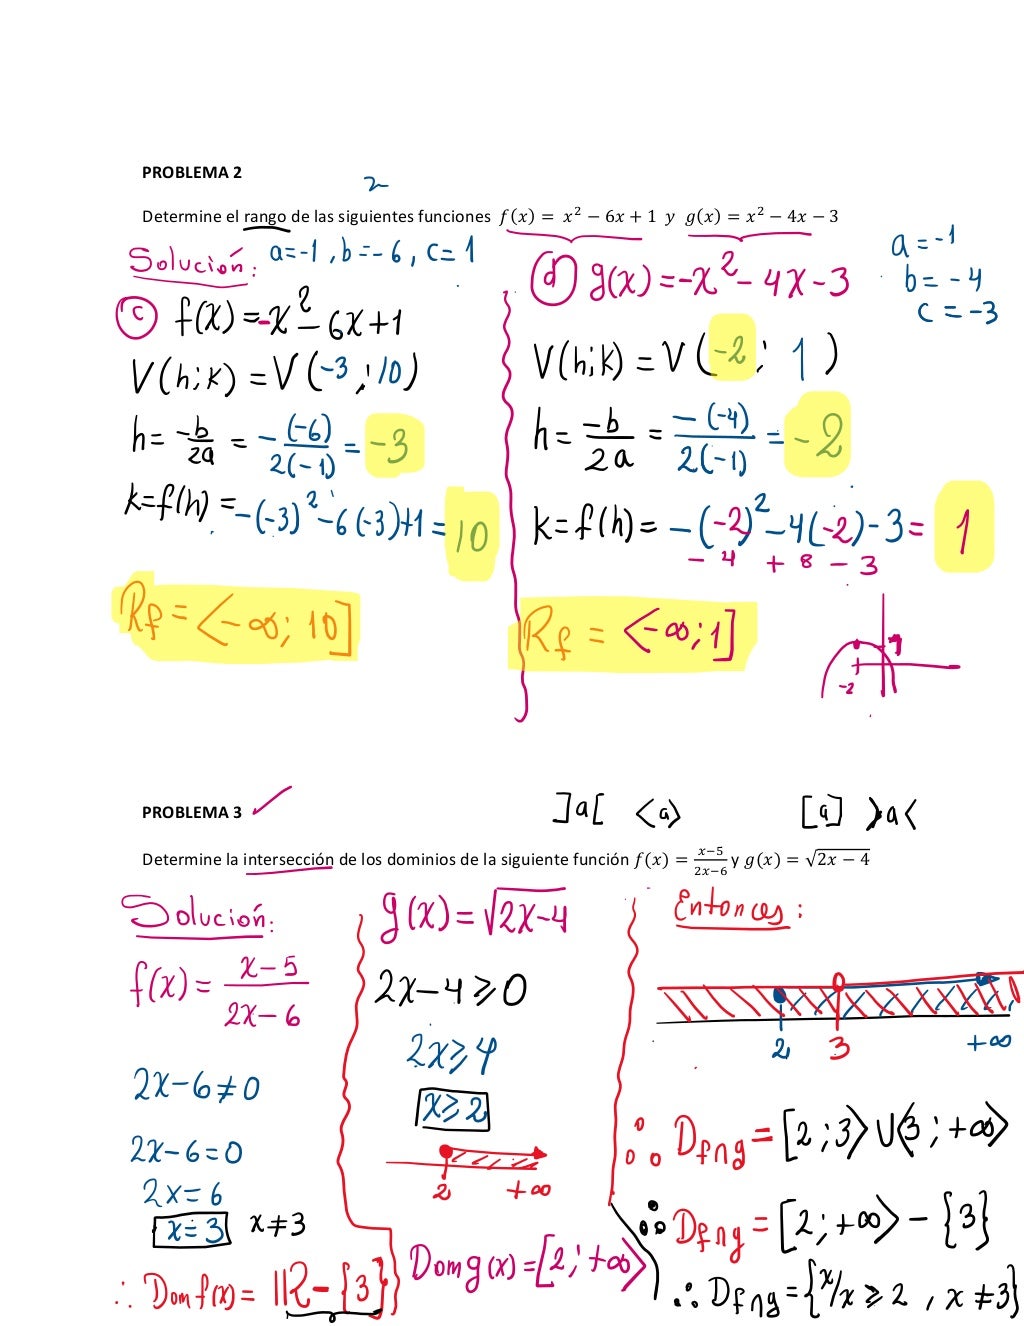 PROBLEMA 2
2
Determine el rango de las siguientes funciones f(x) = x² − 6x + 1 y g(x) = x² − 4x − 3
Solución: a=-1, b=-6, c=1
c f(x)=-x²-6x+1
V(h;k)=V(-3;10)
h= -b/2a = -(-6)/2(-1) = -3
k=f(h)=-(-3)²-6(-3)+1=10
Rf=<-∞;10]
d g(x)=-x²-4x-3
a=-1
b=-4
c=-3
V(h;k)=V(-2; 1)
h= -b/2a = -(-4)/2(-1) = -2
k=f(h)=-(-2)²-4(-2)-3= 1
-4 +8 -3
Rf = <-∞;1]
1
-2
PROBLEMA 3
]a[ <a> [a] >a<
Determine la intersección de los dominios de la siguiente función f(x) = x−5/2x−6 y g(x) = √2x − 4
Solución:
f(x)= x-5/2x-6
2x-6≠0
2x-6=0
2x=6
x=3 x≠3
∴ Domf(x)= IR-{3}
g(x)=√2x-4
2x-4≥0
2x≥4
x≥2
2 +∞
Domg(x)=[2;+∞>
Entonces:
2 3 +∞
∴ Df∩g=[2;3>U<3;+∞>
∴ Df∩g=[2;+∞>-{3}
∴ Df∩g={x/x≥2, x≠3}